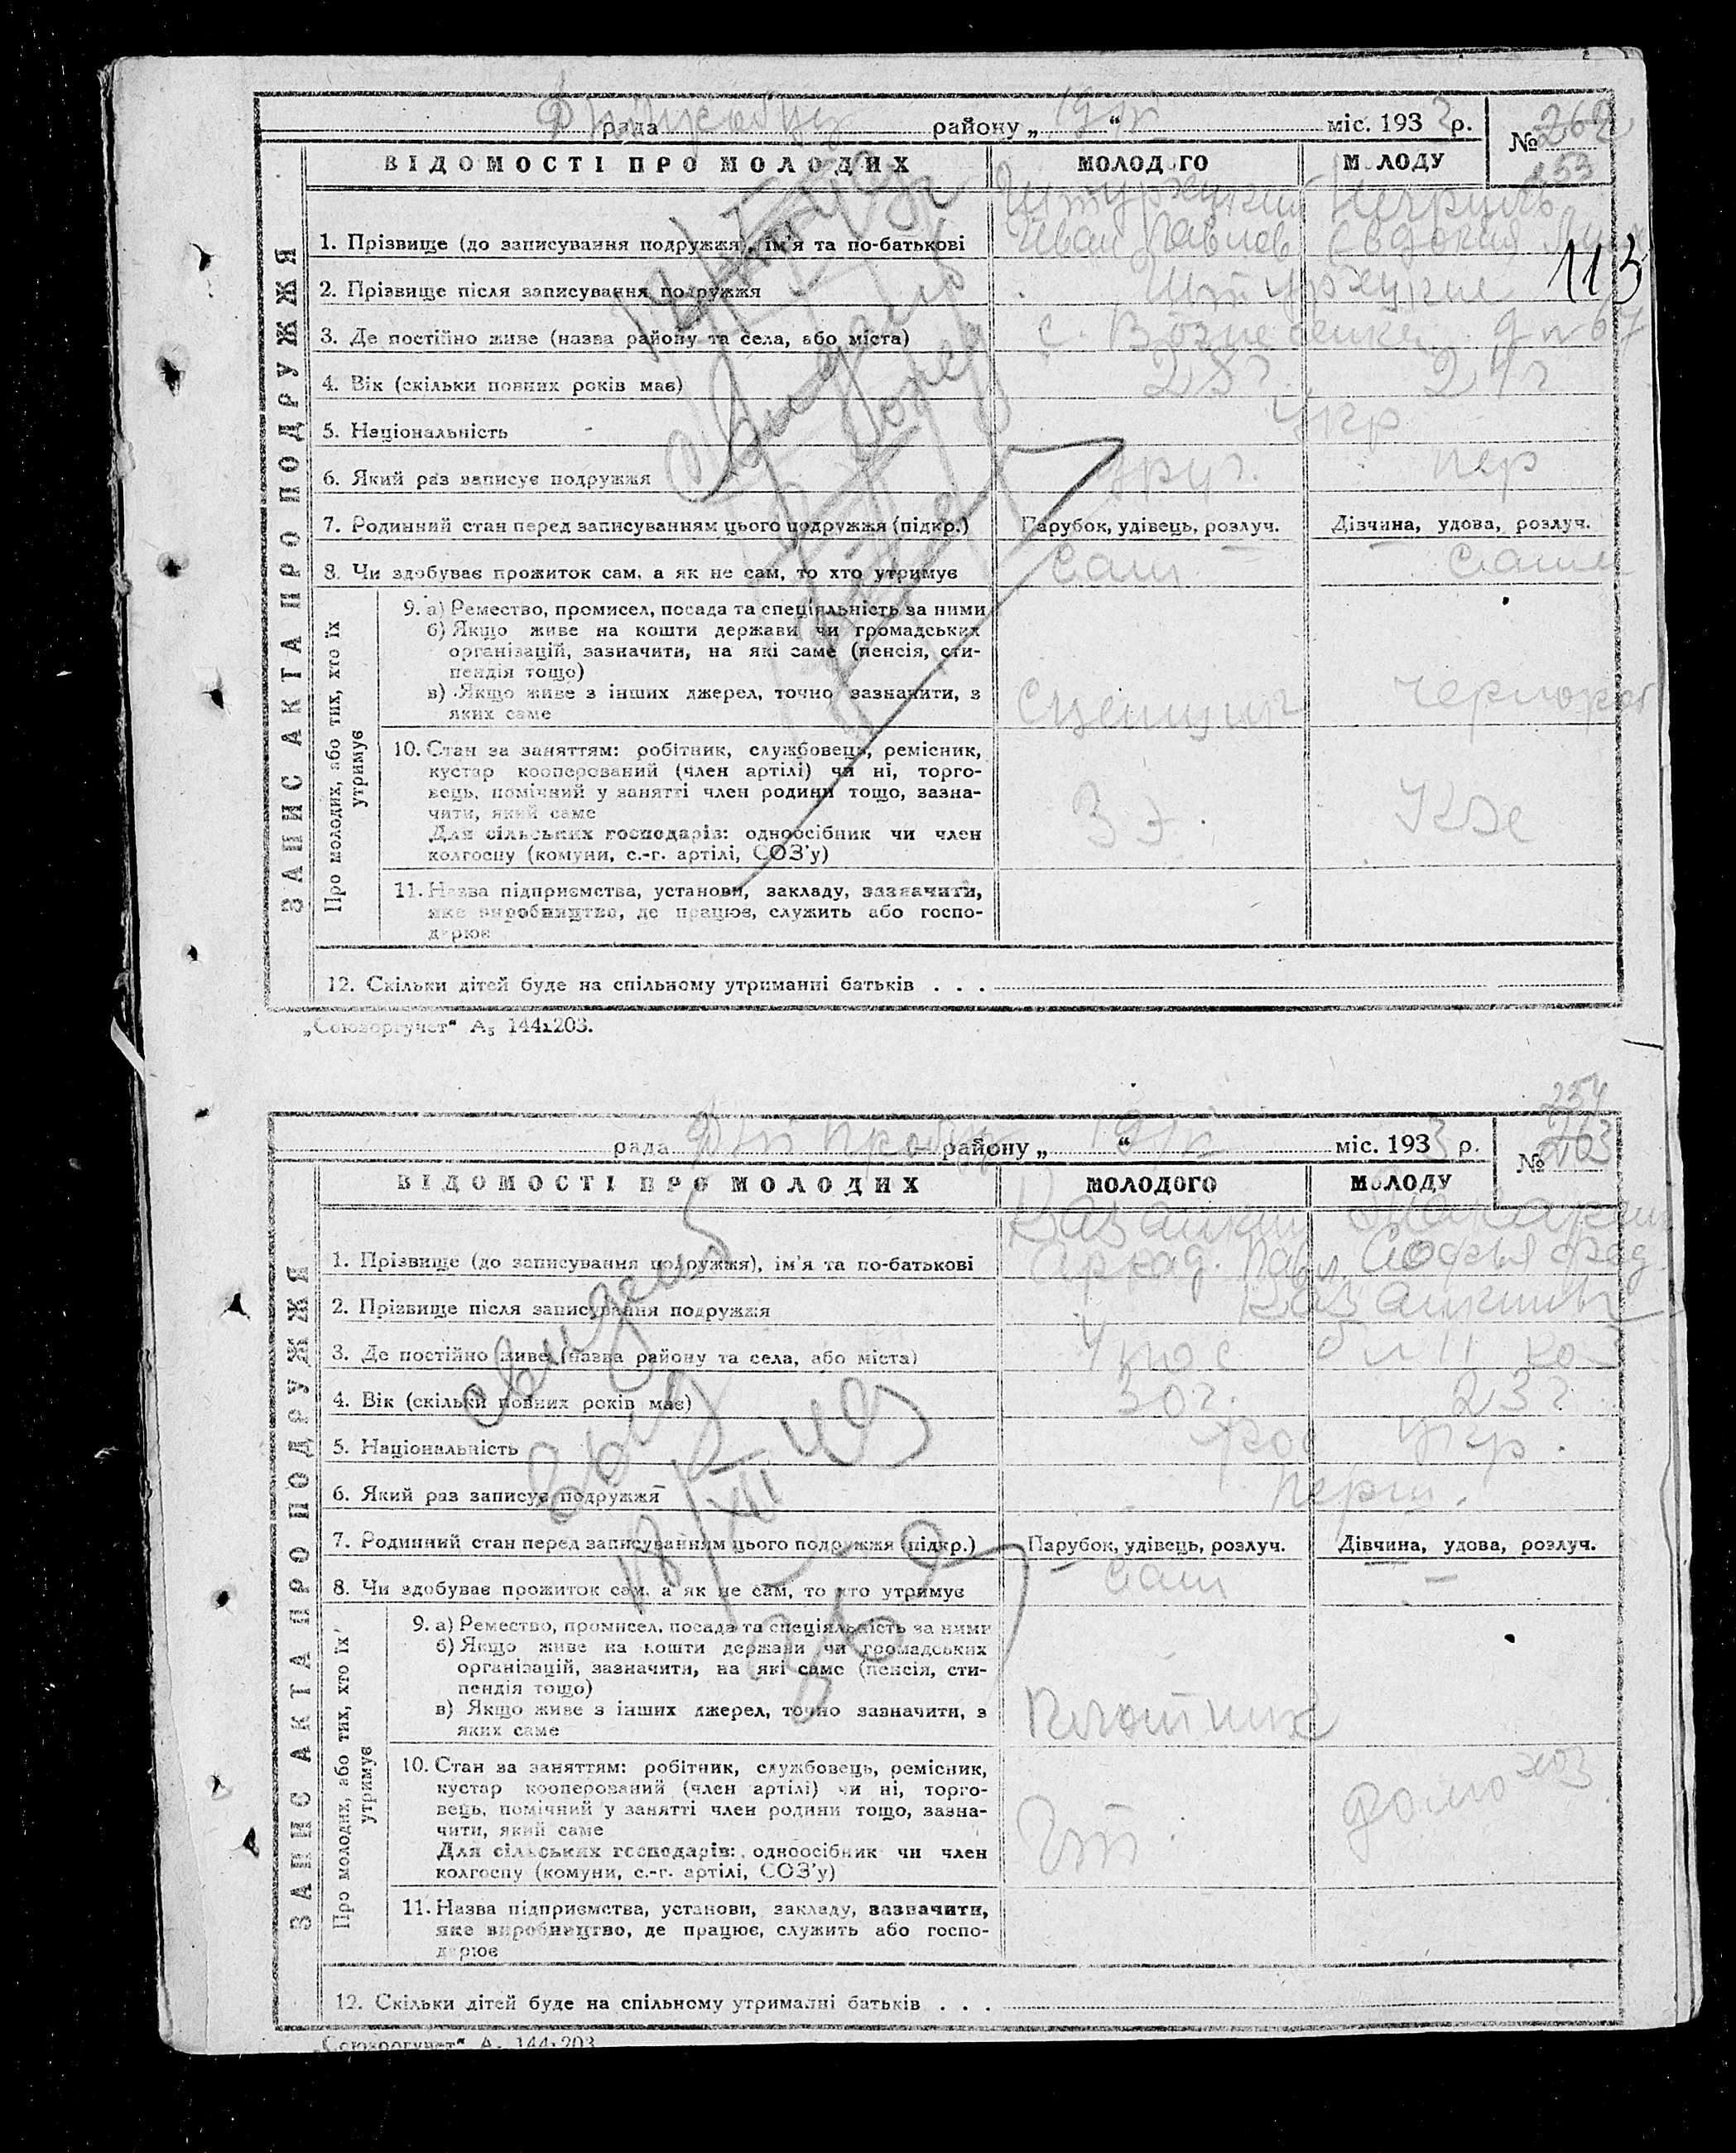 рада району „ “ міс. 1933 р. № 262
ВІДОМОСТІ ПРО МОЛОДИХ МОЛОДОГО МОЛОДУ
153
ЗАПИС АКТА ПРО ПОДРУЖЖЯ
1. Прізвище (до записування подружжя), ім'я та по-батькові Иван Павлов Евдокия
113
2. Прізвище після записування подружжя
3. Де постійно живе (назва району та села, або міста) с. Вознесенка
4. Вік (скільки повних років має)
5. Національність Укр
6. Який раз записує подружжя друг. пер
7. Родинний стан перед записуванням цього подружжя (підкр.) Парубок, удівець, розлуч. Дівчина, удова, розлуч.
8. Чи здобуває прожиток сам, а як не сам, то хто утримує Сам Сама
Про молодих, або тих, хто їх утримує
9. а) Ремество, промисел, посада та спеціяльність за ними
б) Якщо живе на кошти держави чи громадських
організацій, зазначити, на які саме (пенсія, сти-
пендія тощо)
в) Якщо живе з інших джерел, точно зазначити, з
яких саме
10. Стан за заняттям: робітник, службовець, ремісник,
кустар кооперований (член артілі) чи ні, торго-
вець, помічний у занятті член родини тощо, зазна-
чити, який саме
Для сільських господарів: одноосібник чи член
колгоспу (комуни, с.-г. артілі, СОЗ'у)
11. Назва підприємства, установи, закладу, зазначити,
яке виробництво, де працює, служить або госпо-
дарює
12. Скільки дітей буде на спільному утриманні батьків . . .
„Союзоргучет“ А₅ 144х203.
254
рада району „ “ міс. 1933 р. № 263
ВІДОМОСТІ ПРО МОЛОДИХ МОЛОДОГО МОЛОДУ
ЗАПИС АКТА ПРО ПОДРУЖЖЯ
Казанкин
1. Прізвище (до записування подружжя), ім'я та по-батькові Аркад. Павл. Софья
2. Прізвище після записування подружжя
3. Де постійно живе (назва району та села, або міста)
4. Вік (скільки повних років має) 30 г. 23 г
5. Національність рос Укр.
6. Який раз записує подружжя Перш.
7. Родинний стан перед записуванням цього подружжя (підкр.) Парубок, удівець, розлуч. Дівчина, удова, розлуч.
8. Чи здобуває прожиток сам, а як не сам, то хто утримує Сам –
Про молодих, або тих, хто їх утримує
9. а) Ремество, промисел, посада та спеціяльність за ними
б) Якщо живе на кошти держави чи громадських
організацій, зазначити, на які саме (пенсія, сти-
пендія тощо)
в) Якщо живе з інших джерел, точно зазначити, з
яких саме Плотник
10. Стан за заняттям: робітник, службовець, ремісник,
кустар кооперований (член артілі) чи ні, торго-
вець, помічний у занятті член родини тощо, зазна-
чити, який саме домохоз
Для сільських господарів: одноосібник чи член
колгоспу (комуни, с.-г. артілі, СОЗ'у)
11. Назва підприємства, установи, закладу, зазначити,
яке виробництво, де працює, служить або госпо-
дарює
12. Скільки дітей буде на спільному утриманні батьків . . .
„Союзоргучет“ А₅ 144х203